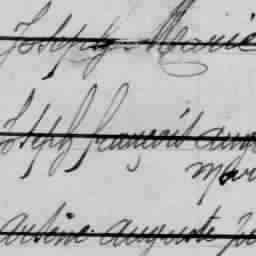 Joseph Marie
Joseph françois augu
Mari
arsène auguste ju